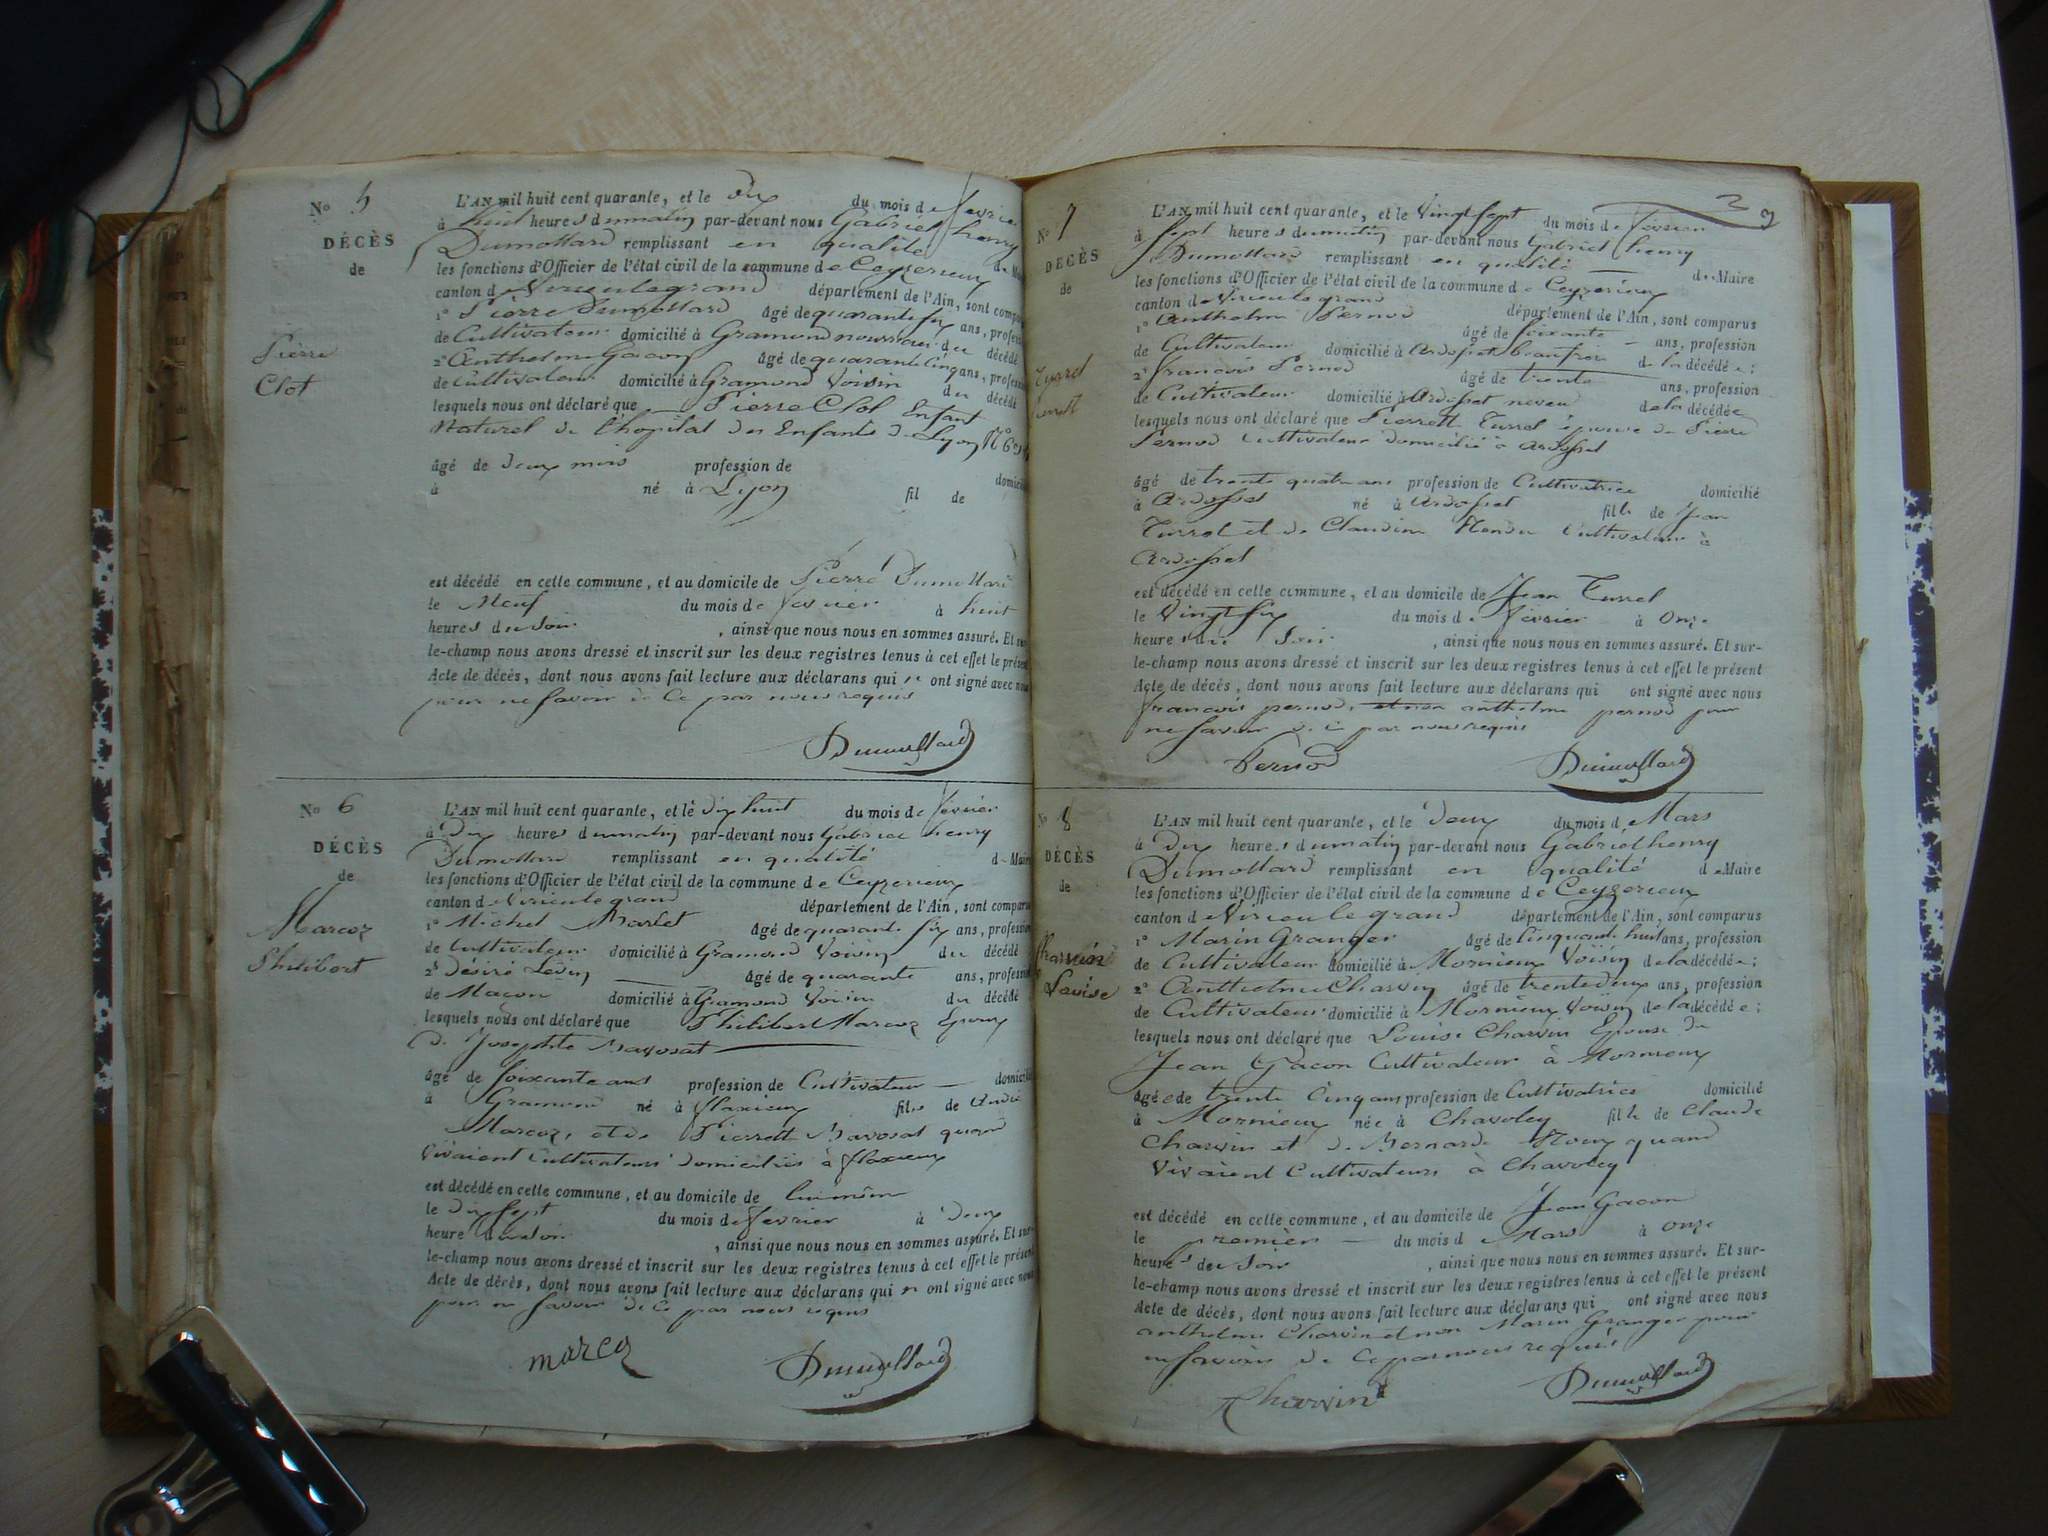 No 5
DÉCÈS
de
Pierre
Clot
L'AN mil huit cent quarante, et le dix du mois de fevrier
à huit heures du matin par-devant nous Gabriel henry
Dumollard remplissant en qualité de Maire
les fonctions d'Officier de l'état civil de la commune de Ceyzerieux
canton de Virieu le grand département de l'Ain, sont comparus
1º Pierre Dumollard âgé de quarante six ans, profession
de Cultivateur domicilié à Gramond nourricier du décédé
2º Anthelme Gacon âgé de quarante cinq ans, profession
de Cultivateur domicilié à Gramond Voisin du décédé
lesquels nous ont déclaré que Pierre Clot Enfant
Naturel de l'hopital des Enfants de Lyon Nº
âgé de deux mois profession de domicilié
à né à Lyon fil de
est décédé en cette commune, et au domicile de Pierre Dumollard
le Neuf du mois de fevrier à huit
heures du soir, ainsi que nous nous en sommes assuré. Et sur-
le-champ nous avons dressé et inscrit sur les deux registres tenus à cet effet le présent
Acte de décès, dont nous avons fait lecture aux déclarans qui n'ont signé avec nous
pour ne savoir de ce par nous requis
Dumollard
No 6
DÉCÈS
de
Marcoz
Philibert
L'AN mil huit cent quarante, et le dix huit du mois de fevrier
à Dix heures du matin par-devant nous Gabriel henry
Dumollard remplissant en qualité de Maire
les fonctions d'Officier de l'état civil de la commune de Ceyzerieux
canton de Virieu le grand département de l'Ain, sont comparus
1º Michel Barlet âgé de quarante six ans, profession
de Cultivateur domicilié à Gramond Voisin du décédé
2º Désiré âgé de quarante ans, profession
de Maçon domicilié à Gramond Voisin du décédé
lesquels nous ont déclaré que Philibert Marcoz Epoux
de Josephte Bavosat
âgé de soixante ans profession de Cultivateur domicilié
à Gramond né à flaxieux fils de André
Marcoz, et de Pierrette Bavosat quand
vivaient Cultivateurs domiciliés à flaxieux
est décédé en cette commune, et au domicile de lui même
le dix sept du mois de fevrier à deux
heure du soir, ainsi que nous nous en sommes assuré. Et sur-
le-champ nous avons dressé et inscrit sur les deux registres tenus à cet effet le présent
Acte de décès, dont nous avons fait lecture aux déclarans qui n'ont signé avec nous
pour ne savoir de ce par nous requis
marcoz
Dumollard
3
No 7
DÉCÈS
de
Turrel
L'AN mil huit cent quarante, et le Vingt sept du mois de fevrier
à sept heures du matin par-devant nous Gabriel henry
Dumollard remplissant en qualité de Maire
les fonctions d'Officier de l'état civil de la commune de Ceyzerieux
canton de Virieu le grand département de l'Ain, sont comparus
1º Anthelme Pernod âgé de soixante ans, profession
de Cultivateur domicilié à Ardosset beaufrere de la décédée;
2º françois Pernod âgé de trente ans, profession
de Cultivateur domicilié à Ardosset neveu de la décédée
lesquels nous ont déclaré que Pierrette Turrel épouse de Pierre
Pernod Cultivateur domicilié à Ardosset
âgé de trente quatre ans profession de Cultivatrice domicilié
à Ardosset né à Ardosset fille de Jean
Turrel et de Claudine Cultivateur à
Ardosset
est décédé en cette commune, et au domicile de Jean Turrel
le Vingt six du mois de fevrier à Onze
heures du Soir, ainsi que nous nous en sommes assuré. Et sur-
le-champ nous avons dressé et inscrit sur les deux registres tenus à cet effet le présent
Acte de décès, dont nous avons fait lecture aux déclarans qui ont signé avec nous
françois pernod, et non anthelme pernod pour
ne savoir de ce par nous requis
Pernod
Dumollard
No 8
DÉCÈS
de
Charvin
Louise
L'AN mil huit cent quarante, et le Deux du mois d Mars
à Dix heures du matin par-devant nous Gabriel henry
Dumollard remplissant en qualité de Maire
les fonctions d'Officier de l'état civil de la commune de Ceyzerieux
canton de Virieu le grand département de l'Ain, sont comparus
1º Marin Granger âgé de Cinquante huit ans, profession
de Cultivateur domicilié à Mornieux Voisin de la décédée;
2º Anthelme Charvin âgé de trente deux ans, profession
de Cultivateur domicilié à Mornieux Voisin de la décédée;
lesquels nous ont déclaré que Louise Charvin Epouse de
Jean Gacon Cultivateur à Mornieux
âgée de trente Cinq ans profession de Cultivatrice domicilié
à Mornieux née à Chavoley fille de Claude
Charvin et de Bernarde Roux quand
vivaient Cultivateurs à Chavoley
est décédé en cette commune, et au domicile de Jean Gacon
le premier du mois d Mars à onze
heures du Soir, ainsi que nous nous en sommes assuré. Et sur-
le-champ nous avons dressé et inscrit sur les deux registres tenus à cet effet le présent
Acte de décès, dont nous avons fait lecture aux déclarans qui ont signé avec nous
anthelme Charvin et non Marin Granger pour
ne savoir de ce par nous requis
Charvin
Dumollard